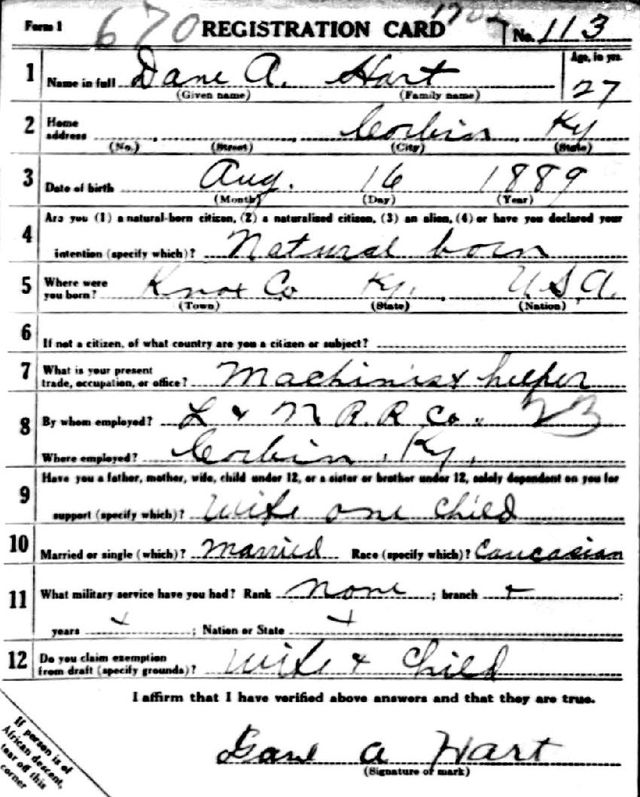 Form 1 670 REGISTRATION CARD No. 113
1 Name in full Dane A. Hart Age, in yrs.
(Given name) (Family name) 27
2 Home address Corbin Ky
(No.) (Street) (City) (State)
3 Date of birth Aug. 16 1889
(Month) (Day) (Year)
4 Are you (1) a natural-born citizen, (2) a naturalized citizen, (3) an alien, (4) or have you declared your
intention (specify which)? Natural born
5 Where were you born? Knox Co Ky. USA.
(Town) (State) (Nation)
6 If not a citizen, of what country are you a citizen or subject?
7 What is your present trade, occupation, or office? Machinist helper
8 By whom employed? L & N R.R Co. 23
Where employed? Corbin, Ky.
9 Have you a father, mother, wife, child under 12, or a sister or brother under 12, solely dependent on you for
support (specify which)? Wife one child
10 Married or single (which)? Married Race (specify which)? Caucasian
11 What military service have you had? Rank None ; branch
years ; Nation or State
12 Do you claim exemption from draft (specify grounds)? Wife & Child
I affirm that I have verified above answers and that they are true.
A Hart
(Signature or mark)
If person is of
African descent,
tear off this
corner